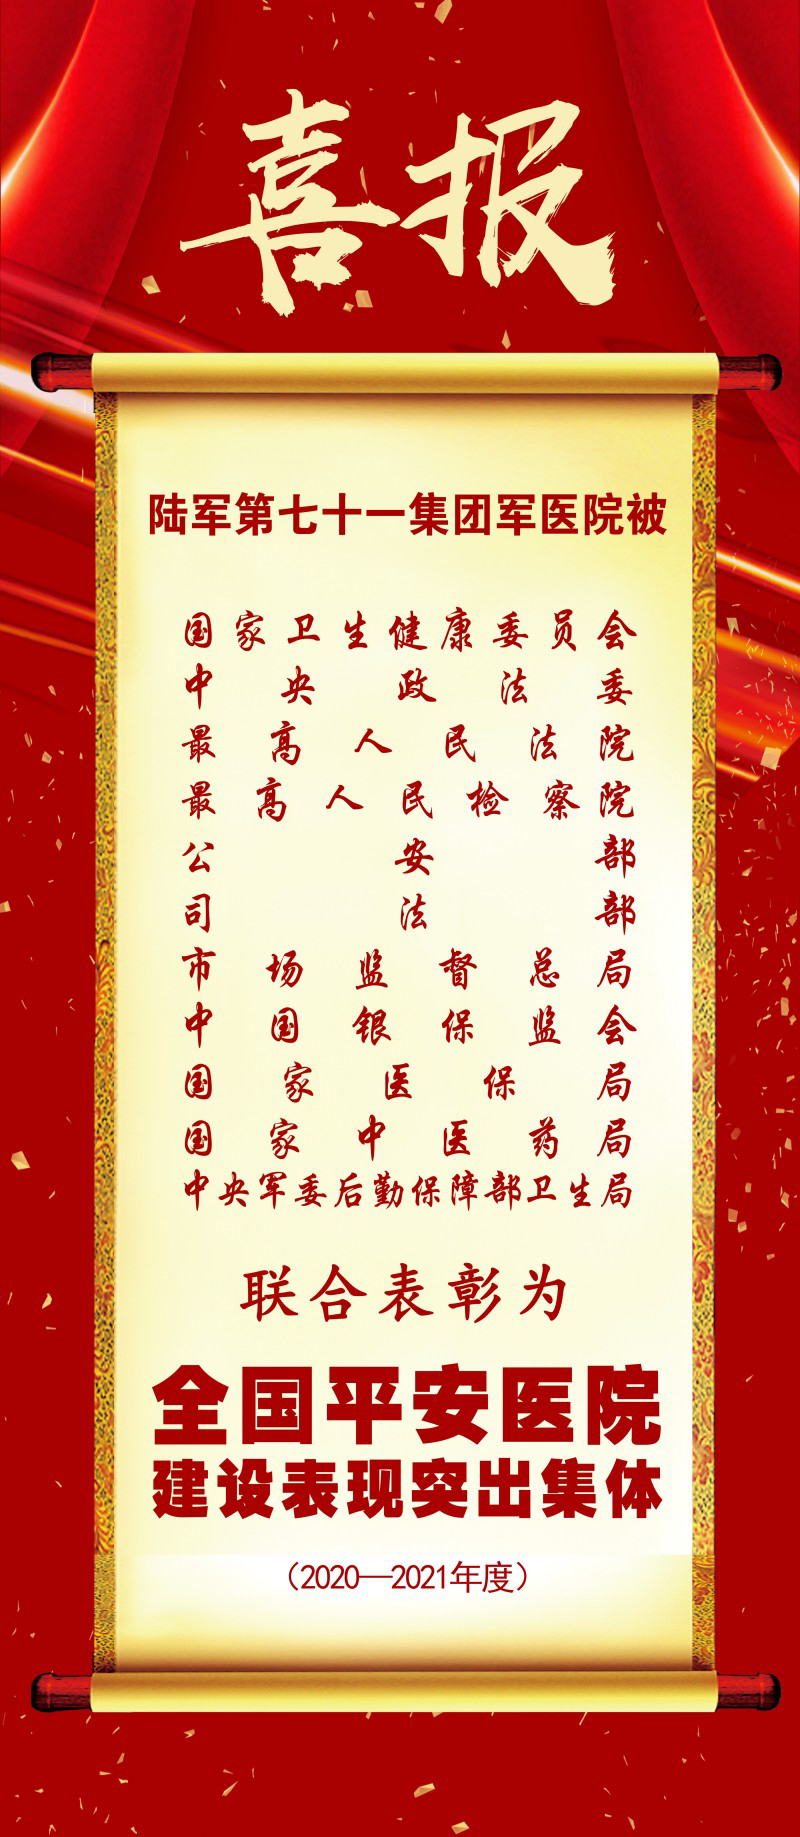 喜报
陆军第七十一集团军医院被
国家卫生健康委员会
中央政法委
最高人民法院
最高人民检察院
公安部
司法部
市场监督总局
中国银保监会
国家医保局
国家中医药局
中央军委后勤保障部卫生局
联合表彰为
全国平安医院
建设表现突出集体
（2020—2021年度）